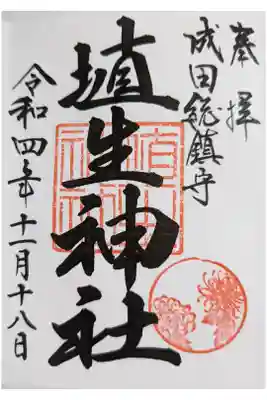 奉拝
成田総鎮守
埴生神社
令和四年十一月十八日